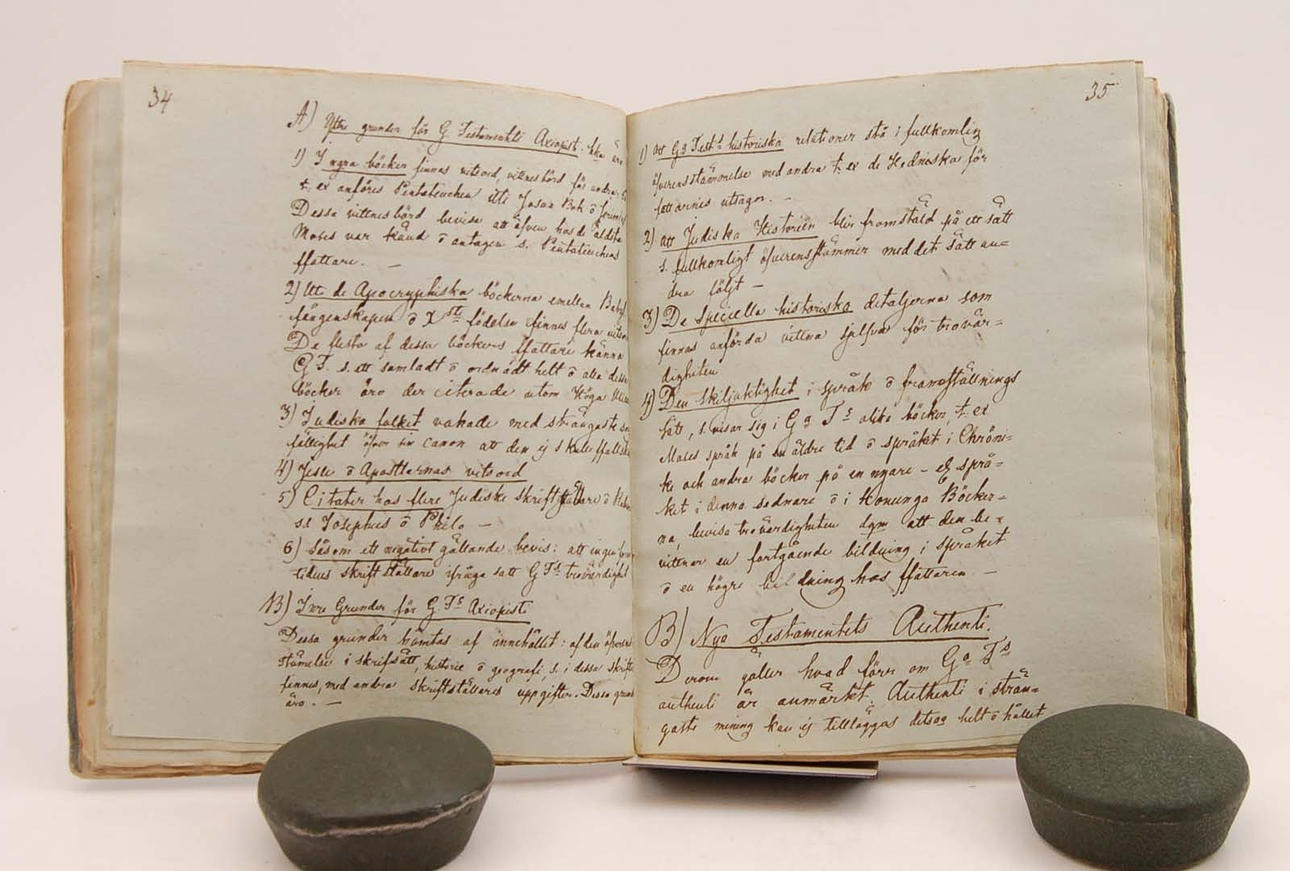 34
A) Yttre grunder för G. Testamentets Axiopist:
1) I egna böcker finnas vitsord, vittnesbörd för andra:
t. ex anföres Pentateuchen uti Josuæ Bok ö
Dessa vittnesbörd bevisa att äfven hos de äldsta
Moses var känd ö antagen s. Pentateuchens
ffattare. —
2) Uti de Apocryphiska böckerna emellan
fångenskapen ö Xsti födelse finnes flera
De flesta af dessa böckers ffattare känna
G. T. s. ett samladt ö ordnadt helt ö alla dessa
böcker äro der citerade utom Höga
3) Judiska folket vakade med strängaste
fällighet öfver sin canon att den ej skulle
4) Jesu ö Apostlarnas vitsord
5) Citater hos flere Judiske skriftställare ö
ss. Josephus ö Philo —
6) Såsom ett negativt gällande bevis: att ingen
tidens skriftställare ifrågasatt G. Ts trovärdighet
B) Inre Grunder för G. Ts Axiopisti
Dessa grunder hämtas af innehållet: af den
stämelse i skrifsätt, historie ö geografi, s. i dessa skrifter
finnes, med andra skriftställares uppgifter. Dessa grunder
äro. —
35
1) att Ga Testts historiska relationer stå i fullkomlig
öfverensstämmelse med andra t. ex de Hedniska för
fattarnes utsagor. —
2) att Judiska Historien blir framstäld på ett sätt
s. fullkomligt öfverensstämmer med det sätt an=
dra följt —
3) De speciella historiska detaljerna som
finnas anförda vittna sjelfva för trovär=
digheten
4) Den skiljaktighet i språk ö framställnings
sätt, s. visar sig i Ga Ts olika böcker, t. ex
Moses språk på en äldre tid ö språket i Chröni=
ke och andra böcker på en nyare — Ej språ=
ket i denna sednare ö i Konunga Böcker=
na, bevisa trovärdigheten dgm att den be=
vittnar en fortgående bildning i språket
ö en högre bildning hos ffattaren. —
B) Nya Testamentets Authenti.
Derom gäller hvad förr om Ga Ts
authenti är anmärkt. Authenti i strän=
gaste mening kan ej tilläggas det helt ö hållet